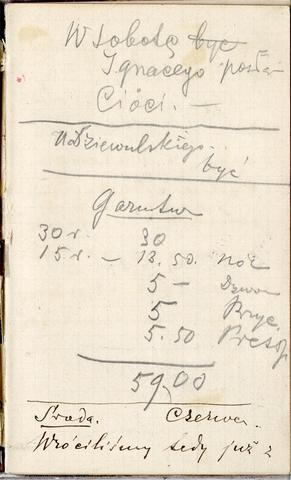 W Sobotę być
Ignacego posła
Cioci. —
U Dziewulskiego.
być
Garnitur
30 r. 30
15 r. — 13.50. nóż
5 —
5
5.50
59,00
Środa. Czerwca.
Wróciliśmy tedy już z